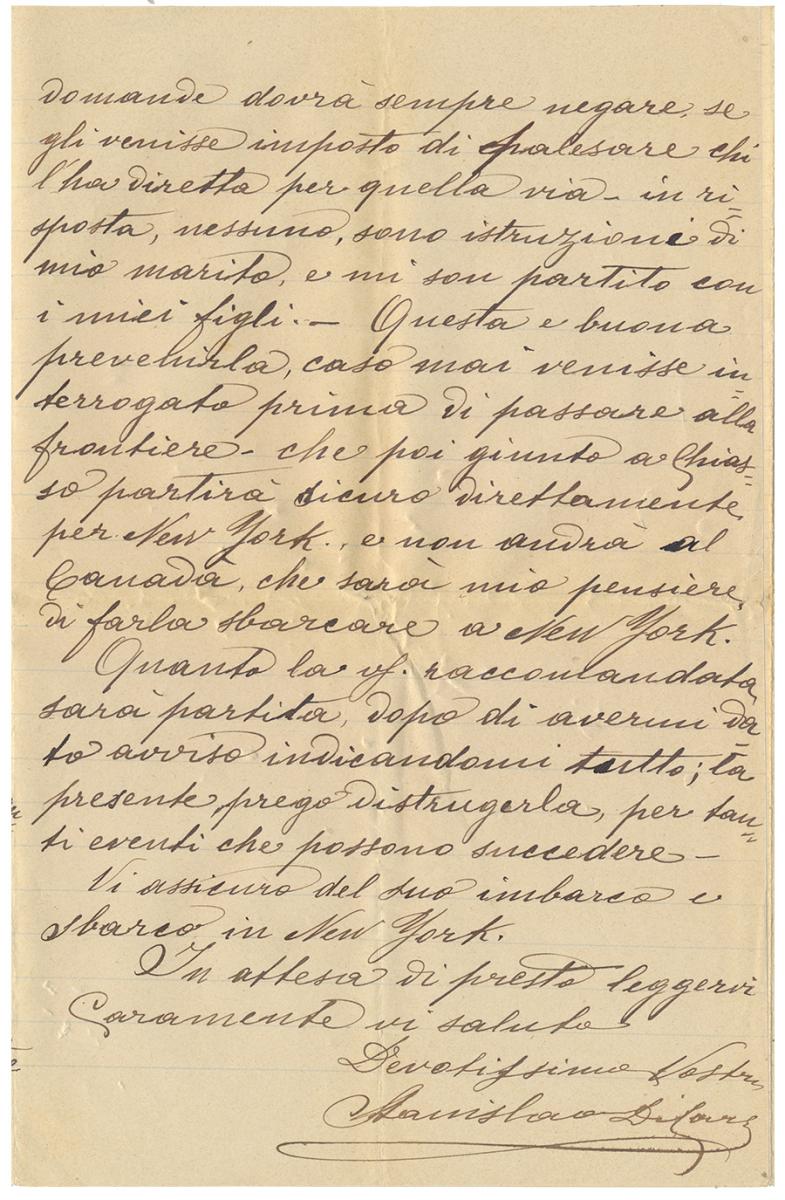 domande dovrà sempre negare, se
gli venisse imposto di palesare chi
l'ha diretta per quella via - in ri=
sposta, nessuno, sono istruzioni di
mio marito, e mi son partito con
i miei figli. — Questa e buona
prevenirla, caso mai venisse in=
terrogato prima di passare alla
frontiere - che poi giunto a Chias=
so partirà sicuro direttamente
per New York., e non andrà al
Canadà, che sarà mio pensiere,
di farla sbarcare a New York.
Quanto la vs. raccomandata
sarà partita, dopo di avermi da=
to avviso indicandomi tutto; la
presente prego distrugerla, per tan=
ti eventi che possono succedere —
Vi assicuro del suo imbarco e
sbarco in New York.
In attesa di presto leggervi
Caramente vi saluto
Devotissimo Vostro
Stanislao